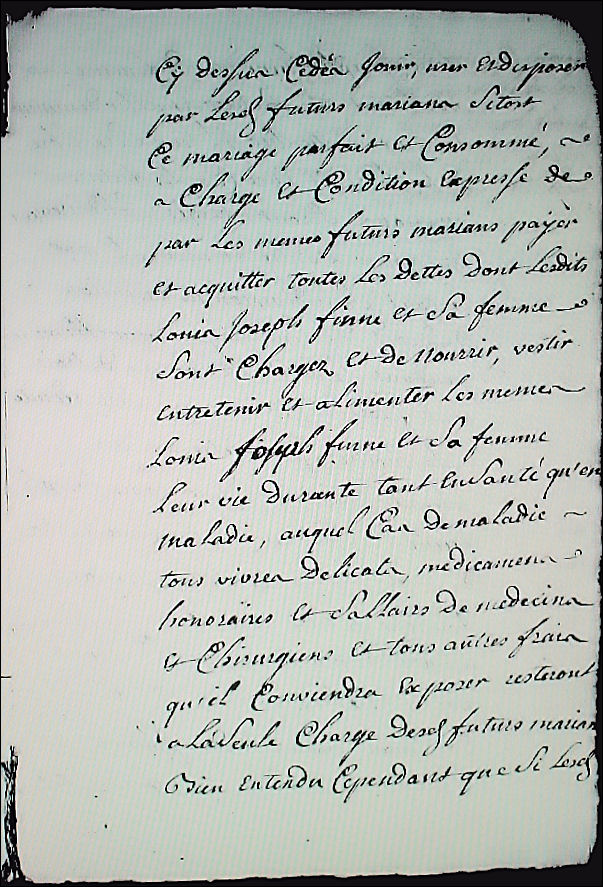 Cy dessus Cedés Jouir, user et disposer
par Lesd. futurs marians sitost
Ce mariage parfait et Consommé, ~
a Charge et Condition Expresse de
par Les memes futurs marians payèr
et acquitter toutes Les Dettes Dont Lesdits
Louis Joseph finne et Sa femme
Sont Chargez, et de nourrir, vestir
entretenir et alimenter Les memes
Louis Joseph finne et Sa femme
Leur vie Durante tant En Santé qu'en
maladie, auquel Cas De maladie ~
tous vivres Delicats, medicamens
honoraires et Sallairs De medecins
et Chirurgiens et tous autres frais
qu'il Conviendra Exposer resteront
a La Seule Charge Desd. futurs marians
Bien Entendu Cependant que Si Lesd.